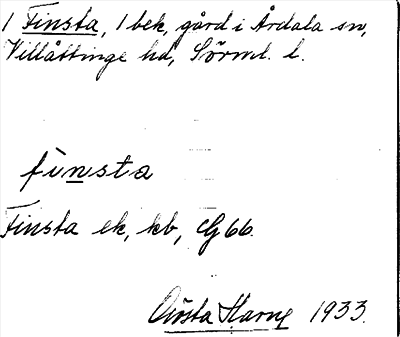 1 Finsta, 1 bek, gård i Årdala sn,
Villåttinge hd, Sörml. l.
fìnsta
Finsta ek, kb, G 66.
Gösta Harne 1933.